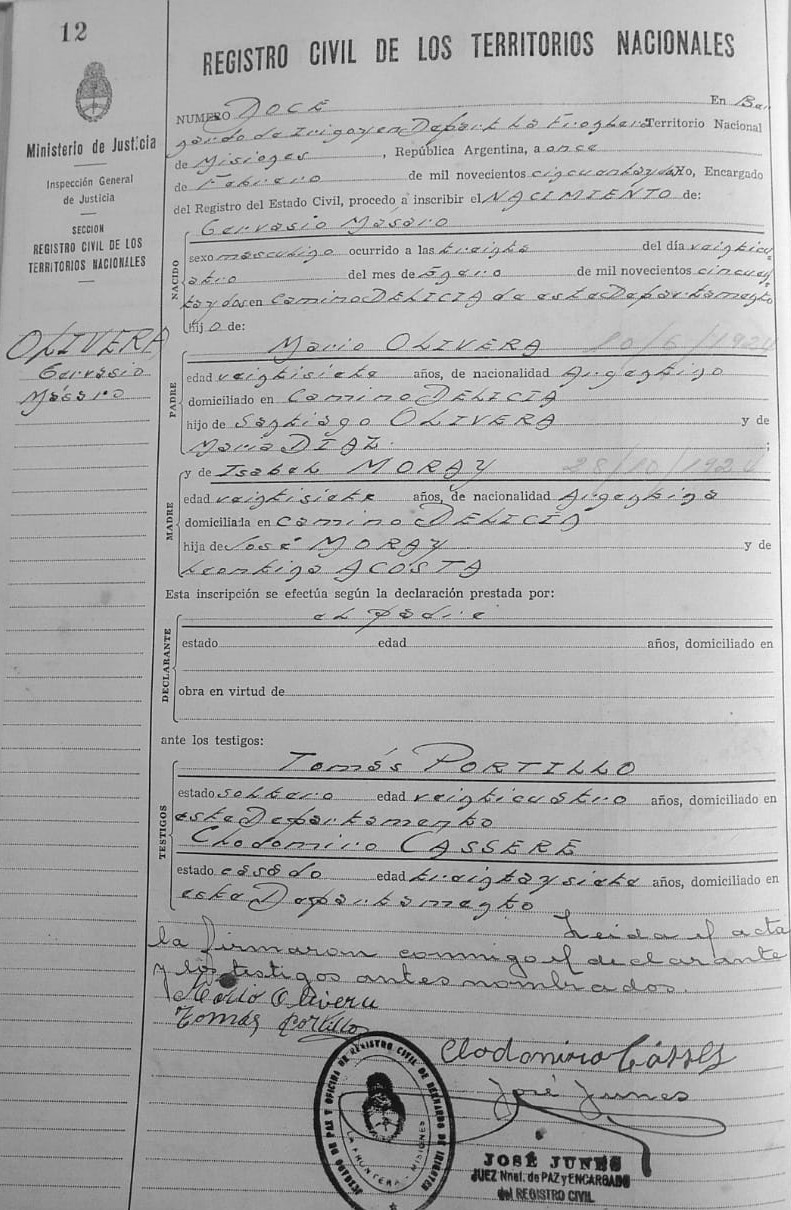 12
REGISTRO CIVIL DE LOS TERRITORIOS NACIONALES
Ministerio de Justicia
Inspección General
de Justicia
SECCION
REGISTRO CIVIL DE LOS
TERRITORIOS NACIONALES
OLIVERA
Gervasio
Másaro
NUMERO DOCE En Ber
nardo de Irigoyen Depart La Frontera Territorio Nacional
de Misiones, República Argentina, a once
de Febrero de mil novecientos cincuentaydos Yo, Encargado
del Registro del Estado Civil, procedo a inscribir el NACIMIENTO de:
Gervasio Másaro
NACIDO
sexo masculino ocurrido a las treinta del día veinticu
atro del mes de Enero de mil novecientos cincuen
taydos en Camino DELICIA de este Departamento
hijo de:
PADRE
Mario OLIVERA 20/6/1924
edad veintisiete años, de nacionalidad Argentino
domiciliado en Camino DELICIA
hijo de Santiago OLIVERA y de
María DÍAZ. ;
MADRE
y de Isabel MORAY 28/10/1924
edad veintisiete años, de nacionalidad Argentina
domiciliada en Camino DELICIA
hija de José MORAY y de
Leontina ACOSTA
Esta inscripción se efectúa según la declaración prestada por:
DECLARANTE
el padre
estado edad años, domiciliado en
obra en virtud de
ante los testigos:
TESTIGOS
Tomás PORTILLO
estado soltero edad veinticuatro años, domiciliado en
este Departamento
Clodomiro CASSERE
estado casado edad treintaysiete años, domiciliado en
este Departamento
Leida el acta
la firmaron conmigo el declarante
y los testigos antes nombrados.
Mario Olivera
Tomás portillo
Clodomiro
José Junes
JUZGADO DE PAZ Y OFICINA DE REGISTRO CIVIL DE BERNARDO DE IRIGOYEN
LA FRONTERA - MISIONES
JOSÉ JUNES
JUEZ Nnal. de PAZ y ENCARGADO
del REGISTRO CIVIL